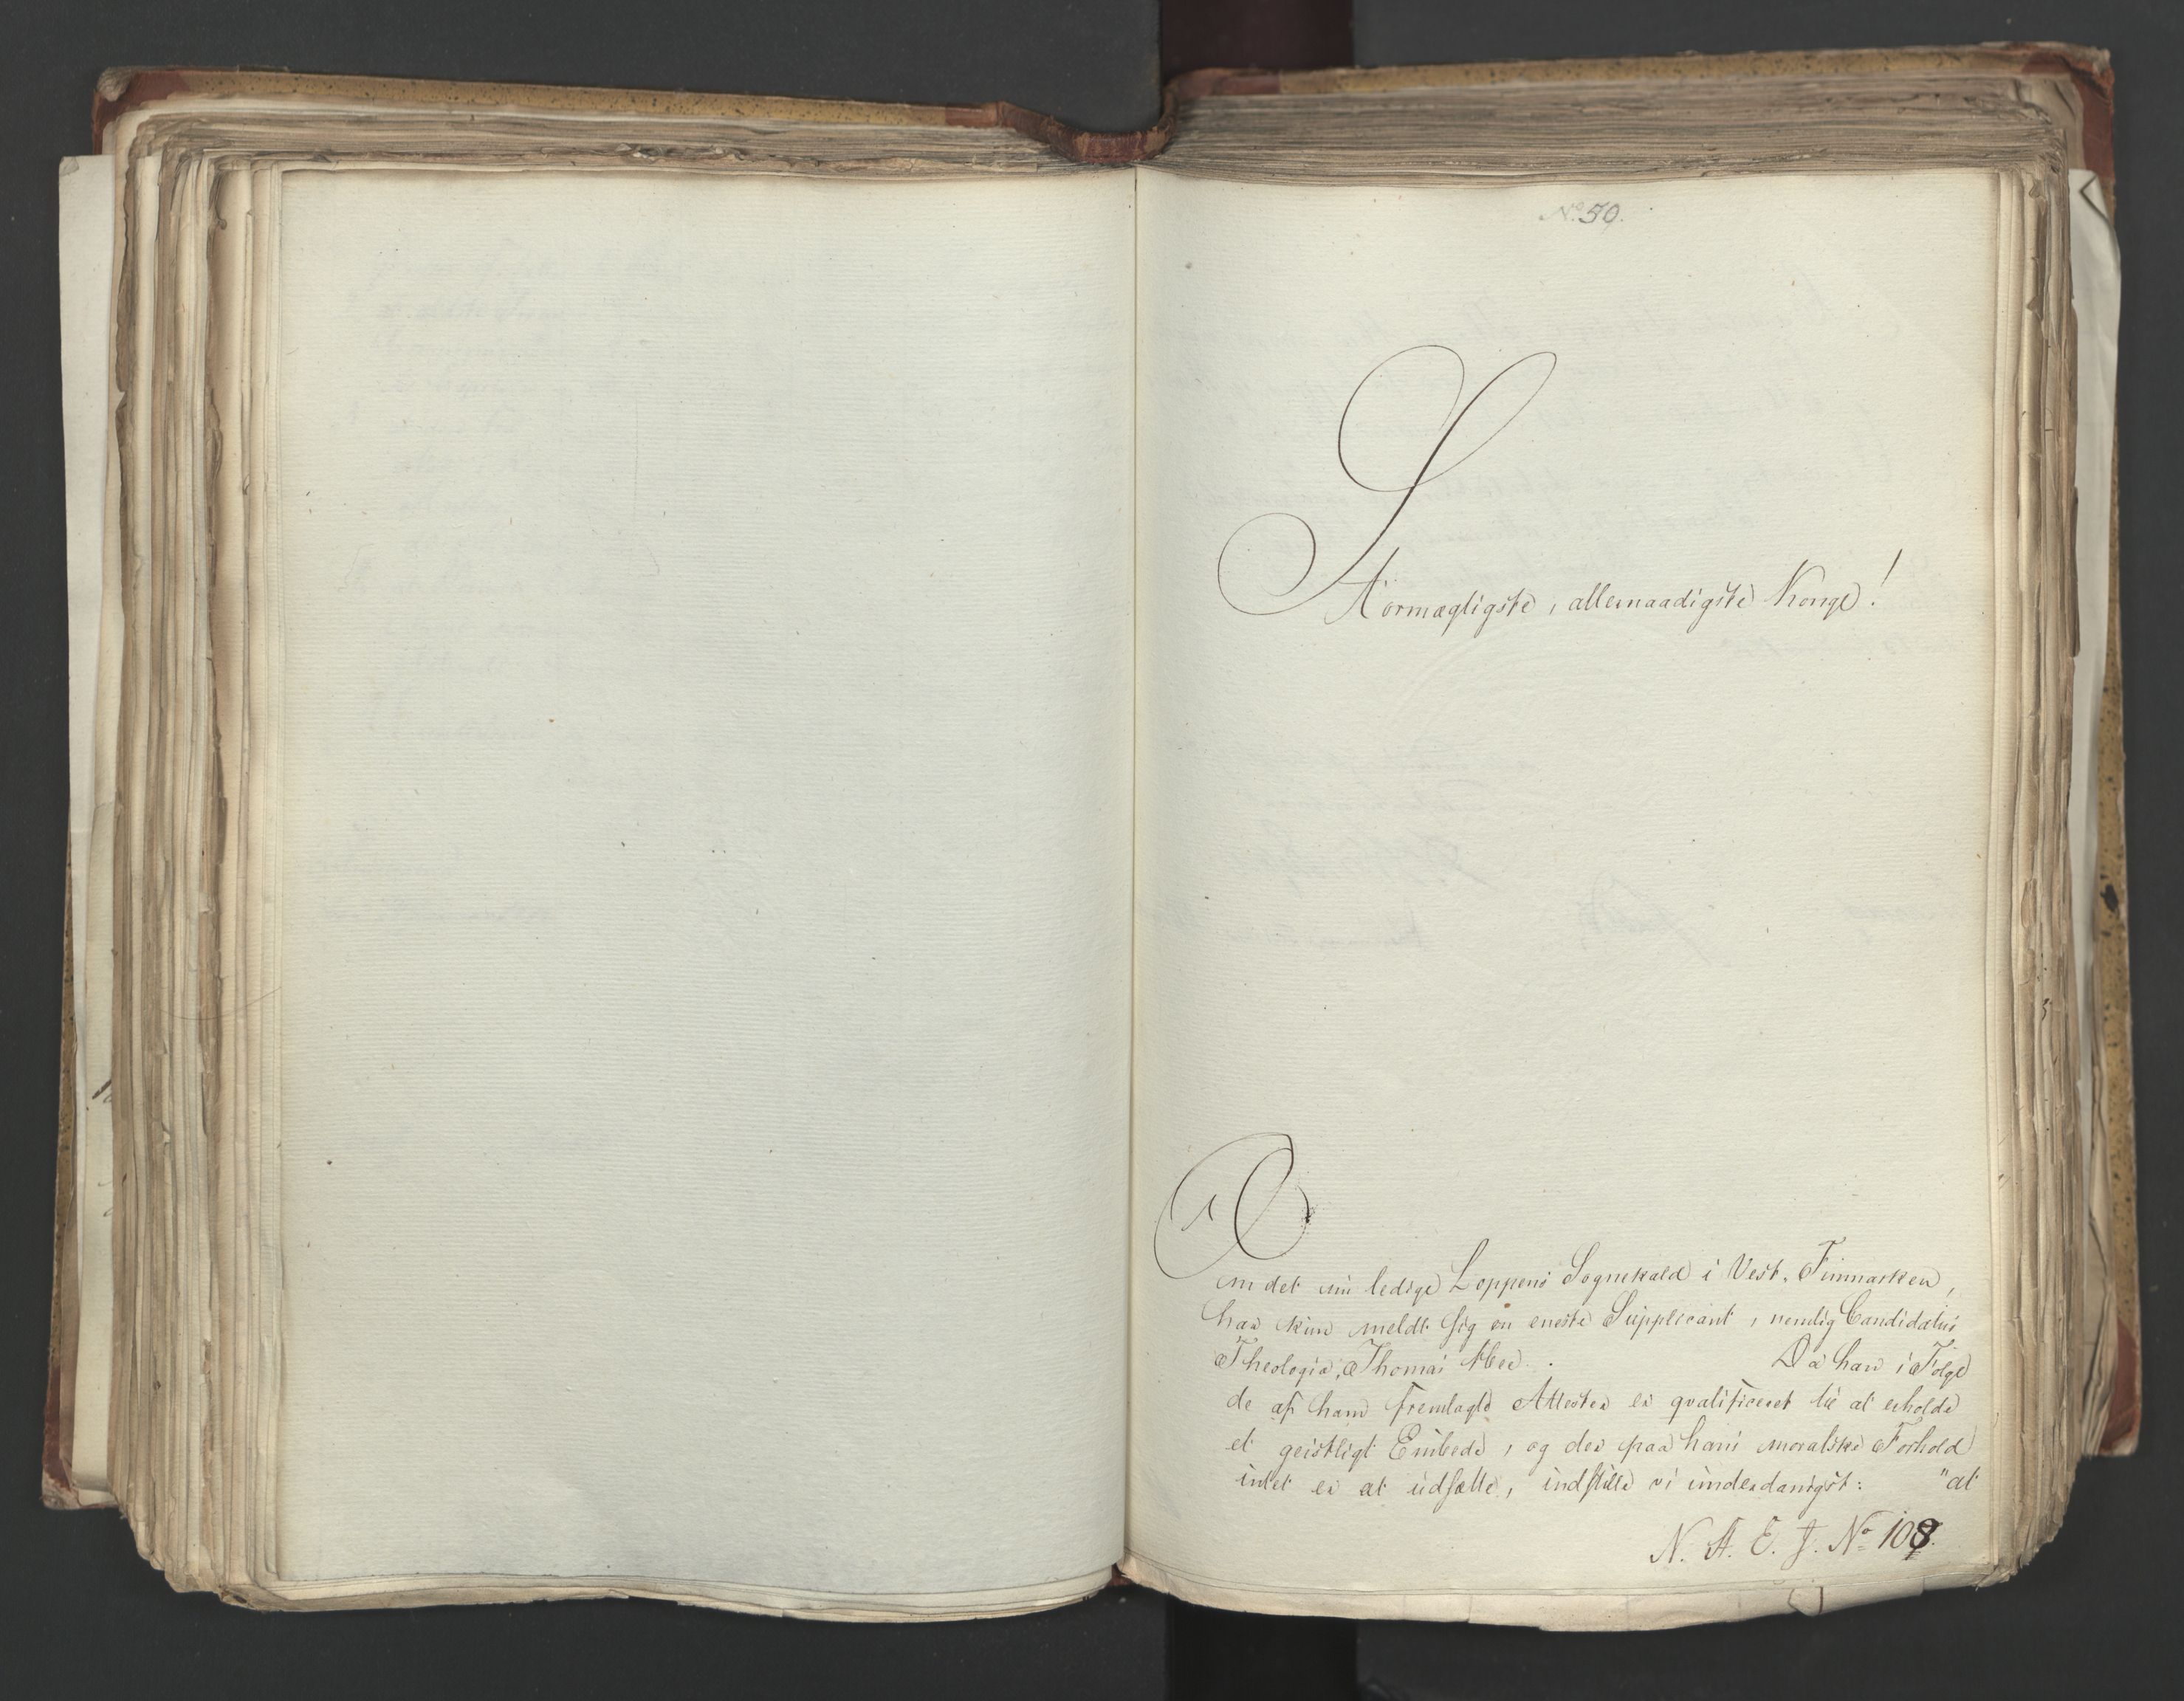 No. 50.
Stormægtigste, allernaadigste Konge!
Om det nu ledige Loppens Sognekald i Vest-Finmarken,
har kun meldt sig en eneste Supplicant, nemlig Candidatus
Theologiæ, Thomas Da han i Følge
de af ham fremlagte Attester er qvalificeret til at erholde
et geistligt Embede, og der paa hans moralske Forhold
intet er at udsætte, indstille vi underdanigst: "at
N. A. E. J. No 108.